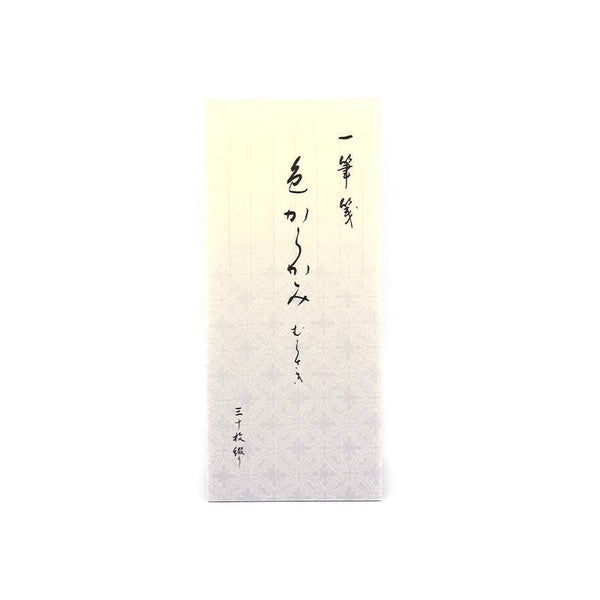 一筆箋
色からかみ
むらさき
三十枚綴り